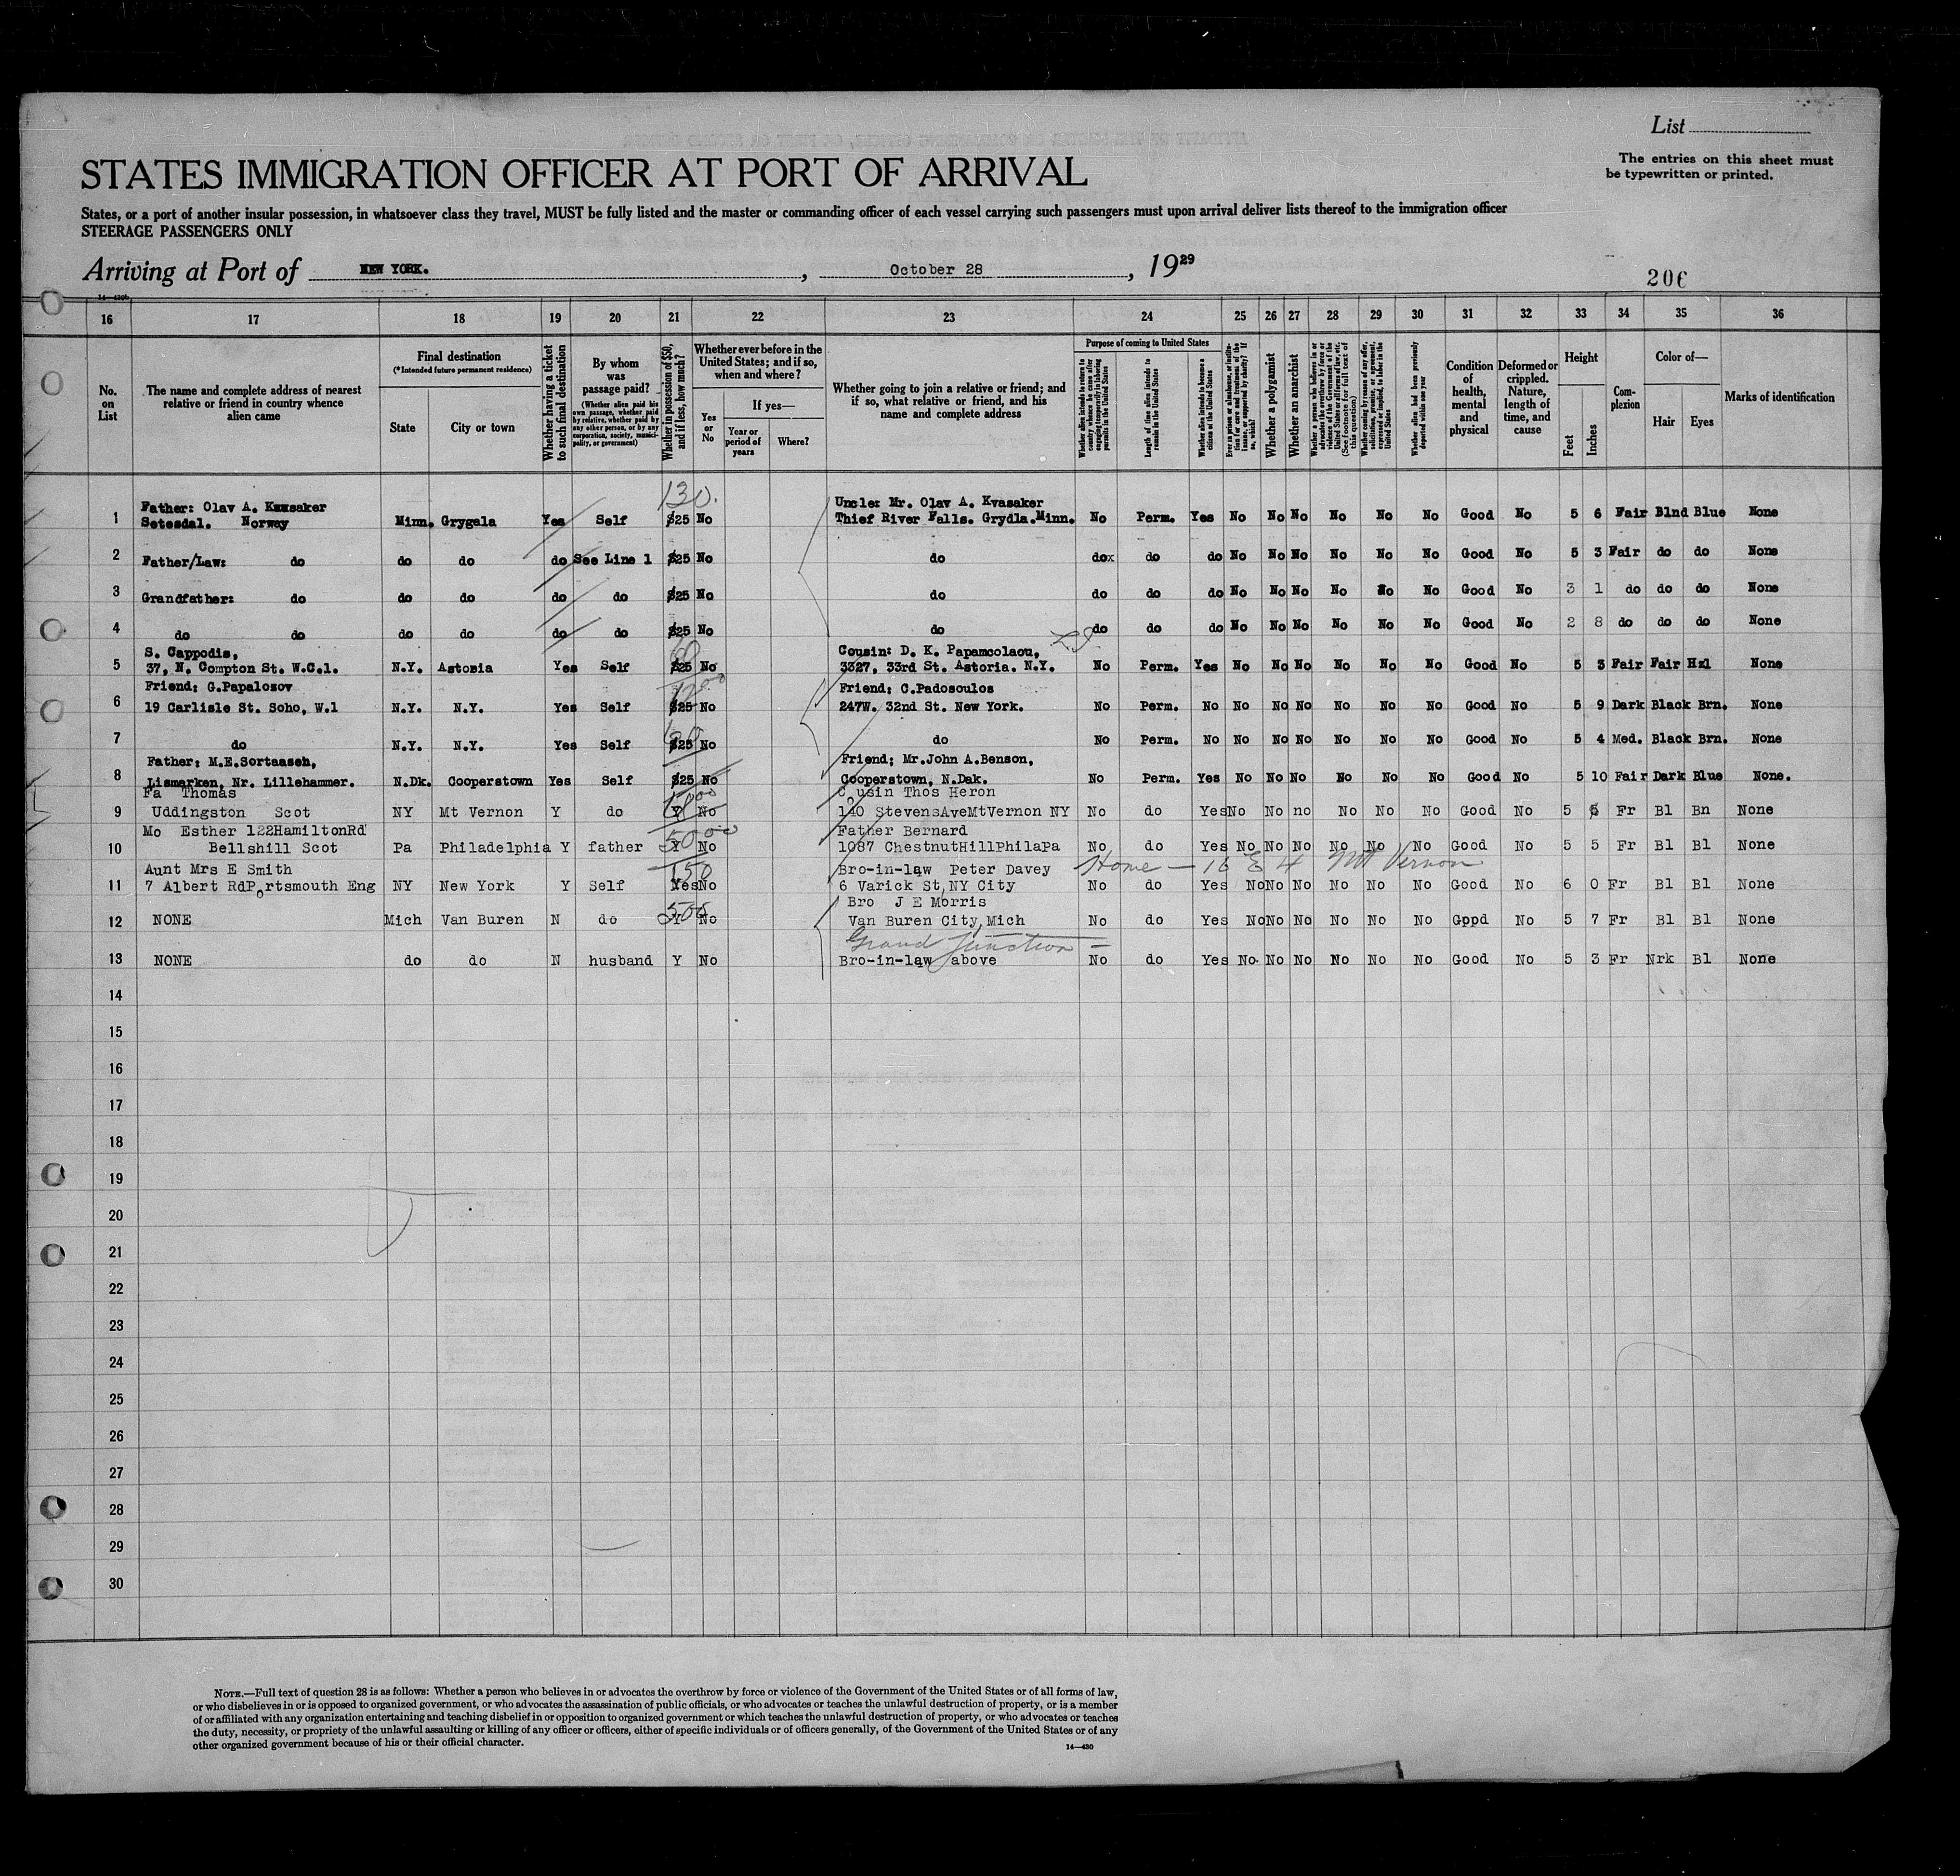 List
The entries on this sheet must
be typewritten or printed.
STATES IMMIGRATION OFFICER AT PORT OF ARRIVAL
States, or a port of another insular possession, in whatsoever class they travel, MUST be fully listed and the master or commanding officer of each vessel carrying such passengers must upon arrival deliver lists thereof to the immigration officer
STEERAGE PASSENGERS ONLY
Arriving at Port of NEW YORK. , October 28 , 1929
206
16 17 18 19 20 21 22 23 24 25 26 27 28 29 30 31 32 33 34 35 36
No. on List
The name and complete address of nearest relative or friend in country whence alien came
Final destination
(*Intended future permanent residence)
State
City or town
Whether having a ticket to such final destination
By whom was passage paid?
(Whether alien paid his own passage, whether paid by relative, whether paid by any other person, or by any corporation, society, municipality, or government)
Whether in possession of $50, and if less, how much?
Whether ever before in the United States; and if so, when and where?
Yes or No
If yes—
Year or period of years
Where?
Whether going to join a relative or friend; and if so, what relative or friend, and his name and complete address
Purpose of coming to United States
Length of time alien intends to remain in the United States
Whether alien intends to become a citizen of the United States
Whether a polygamist
Whether an anarchist
Condition of health, mental and physical
Deformed or crippled. Nature, length of time, and cause
Height
Feet
Inches
Complexion
Color of—
Hair
Eyes
Marks of identification
130.
Father: Olav A. Kvasaker Uncle: Mr. Olav A. Kvasaker
1 Setesdal. Norway Minn. Grygala Yes Self $25 No Thief River Falls. Grydla.Minn. No Perm. Yes No No No No No No Good No 5 6 Fair Blnd Blue None
2 Father/Law: do do do do See Line 1 $25 No do do do do No No No No No No Good No 5 3 Fair do do None
3 Grandfather: do do do do do $25 No do do do do No No No No No No Good No 3 1 do do do None
4 do do do do do do $25 No do do do do No No No No No No Good No 2 8 do do do None
S. Cappodis, Cousin: D. K. Papamcolaou,
5 37, N. Compton St. W.C.1. N.Y. Astoria Yes Self $25 No 3327, 33rd St. Astoria. N.Y. No Perm. Yes No No No No No No Good No 5 3 Fair Fair Hzl None
Friend: G.Papalosov Friend: C.Padosoulos
6 19 Carlisle St. Soho, W.1 N.Y. N.Y. Yes Self $25 No 247W. 32nd St. New York. No Perm. No No No No No No No Good No 5 9 Dark Black Brn. None
7 do N.Y. N.Y. Yes Self $25 No do No Perm. No No No No No No No Good No 5 4 Med. Black Brn. None
Father: M.E.Sortaaseh, Friend; Mr.John A.Benson,
8 Lismarken, Nr. Lillehammer. N.Dk. Cooperstown Yes Self $25 No Cooperstown, N.Dak. No Perm. Yes No No No No No No Good No 5 10 Fair Dark Blue None.
Fa Thomas C usin Thos Heron
9 Uddingston Scot NY Mt Vernon Y do Y No 140 StevensAveMtVernon NY No do Yes No No no No No No Good No 5 5 Fr Bl Bn None
Mo Esther 122HamiltonRd Father Bernard
10 Bellshill Scot Pa Philadelphia Y father Y No 1087 ChestnutHillPhilaPa No do Yes No No No No No No Good No 5 5 Fr Bl Bl None
Aunt Mrs E Smith 150 Bro-in-law Peter Davey Home — 16 E 4 Mt Vernon
11 7 Albert RdPortsmouth Eng NY New York Y Self Yes No 6 Varick St,NY City No do Yes No No No No No No Good No 6 0 Fr Bl Bl None
500 Bro J E Morris
12 NONE Mich Van Buren N do Y No Van Buren City,Mich No do Yes No No No No No No Gppd No 5 7 Fr Bl Bl None
Grand Junction —
13 NONE do do N husband Y No Bro-in-law above No do Yes No. No No No No No Good No 5 3 Fr Nrk Bl None
14
15
16
17
18
19
20
21
22
23
24
25
26
27
28
29
30
NOTE.—Full text of question 28 is as follows: Whether a person who believes in or advocates the overthrow by force or violence of the Government of the United States or of all forms of law,
or who disbelieves in or is opposed to organized government, or who advocates the assassination of public officials, or who advocates or teaches the unlawful destruction of property, or is a member
of or affiliated with any organization entertaining and teaching disbelief in or opposition to organized government or which teaches the unlawful destruction of property, or who advocates or teaches
the duty, necessity, or propriety of the unlawful assaulting or killing of any officer or officers, either of specific individuals or of officers generally, of the Government of the United States or of any
other organized government because of his or their official character.
14—430